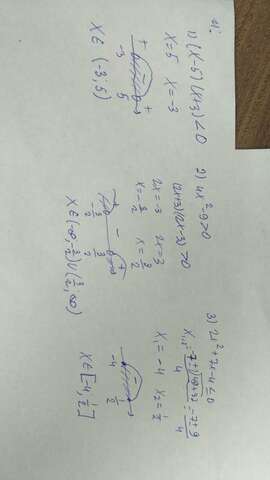 №1.
1) (x-5)(x+3)<0
x=5 x=-3
+ - +
-3 5
x∈ (-3;5)
2) 4x²-9>0
(2x+3)(2x-3)>0
2x=-3 2x=3
x=-3/2 x=3/2
+ - +
-3/2 3/2
x∈(-∞;-3/2)∪(3/2;∞)
3) 2x²+7x-4≤0
x₁,₂=-7±√49+32/4=-7±9/4
x₁=-4 x₂=1/2
-
-4 1/2
x∈[-4;1/2]